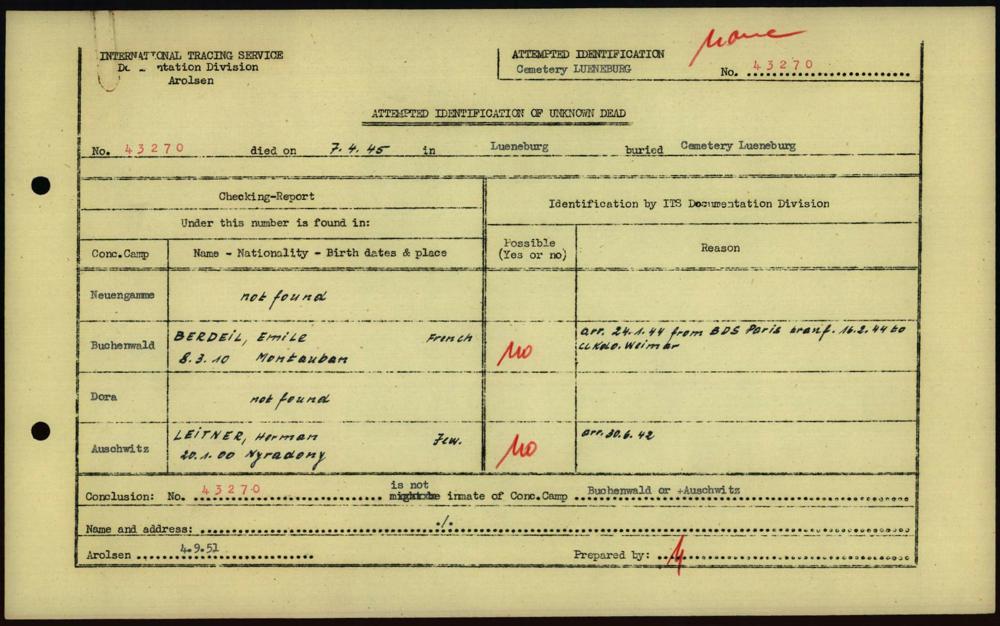 INTERNATIONAL TRACING SERVICE
Documentation Division
Arolsen
ATTEMPTED IDENTIFICATION
Cemetery LUENEBURG
None
No. 43270
ATTEMPTED IDENTIFICATION OF UNKNOWN DEAD
No. 43270 died on 7.4.45 in Lueneburg buried Cemetery Lueneburg
Checking-Report
Under this number is found in:
Identification by ITS Documentation Division
Conc.Camp
Name - Nationality - Birth dates & place
Possible
(Yes or no)
Reason
Neuengamme
not found
Buchenwald
BERDEIL, Emile French
8.3.10 Montauban
No
arr. 24.1.44 from BDS Paris tranf. 16.2.44 to
Weimar
Dora
not found
Auschwitz
LEITNER, Herman Jew.
20.1.00 Nyradony
No
arr. 30.6.42
is not
Conclusion: No. 43270 might be inmate of Conc.Camp Buchenwald or +Auschwitz
Name and address: ./.
Arolsen 4.9.51 Prepared by: